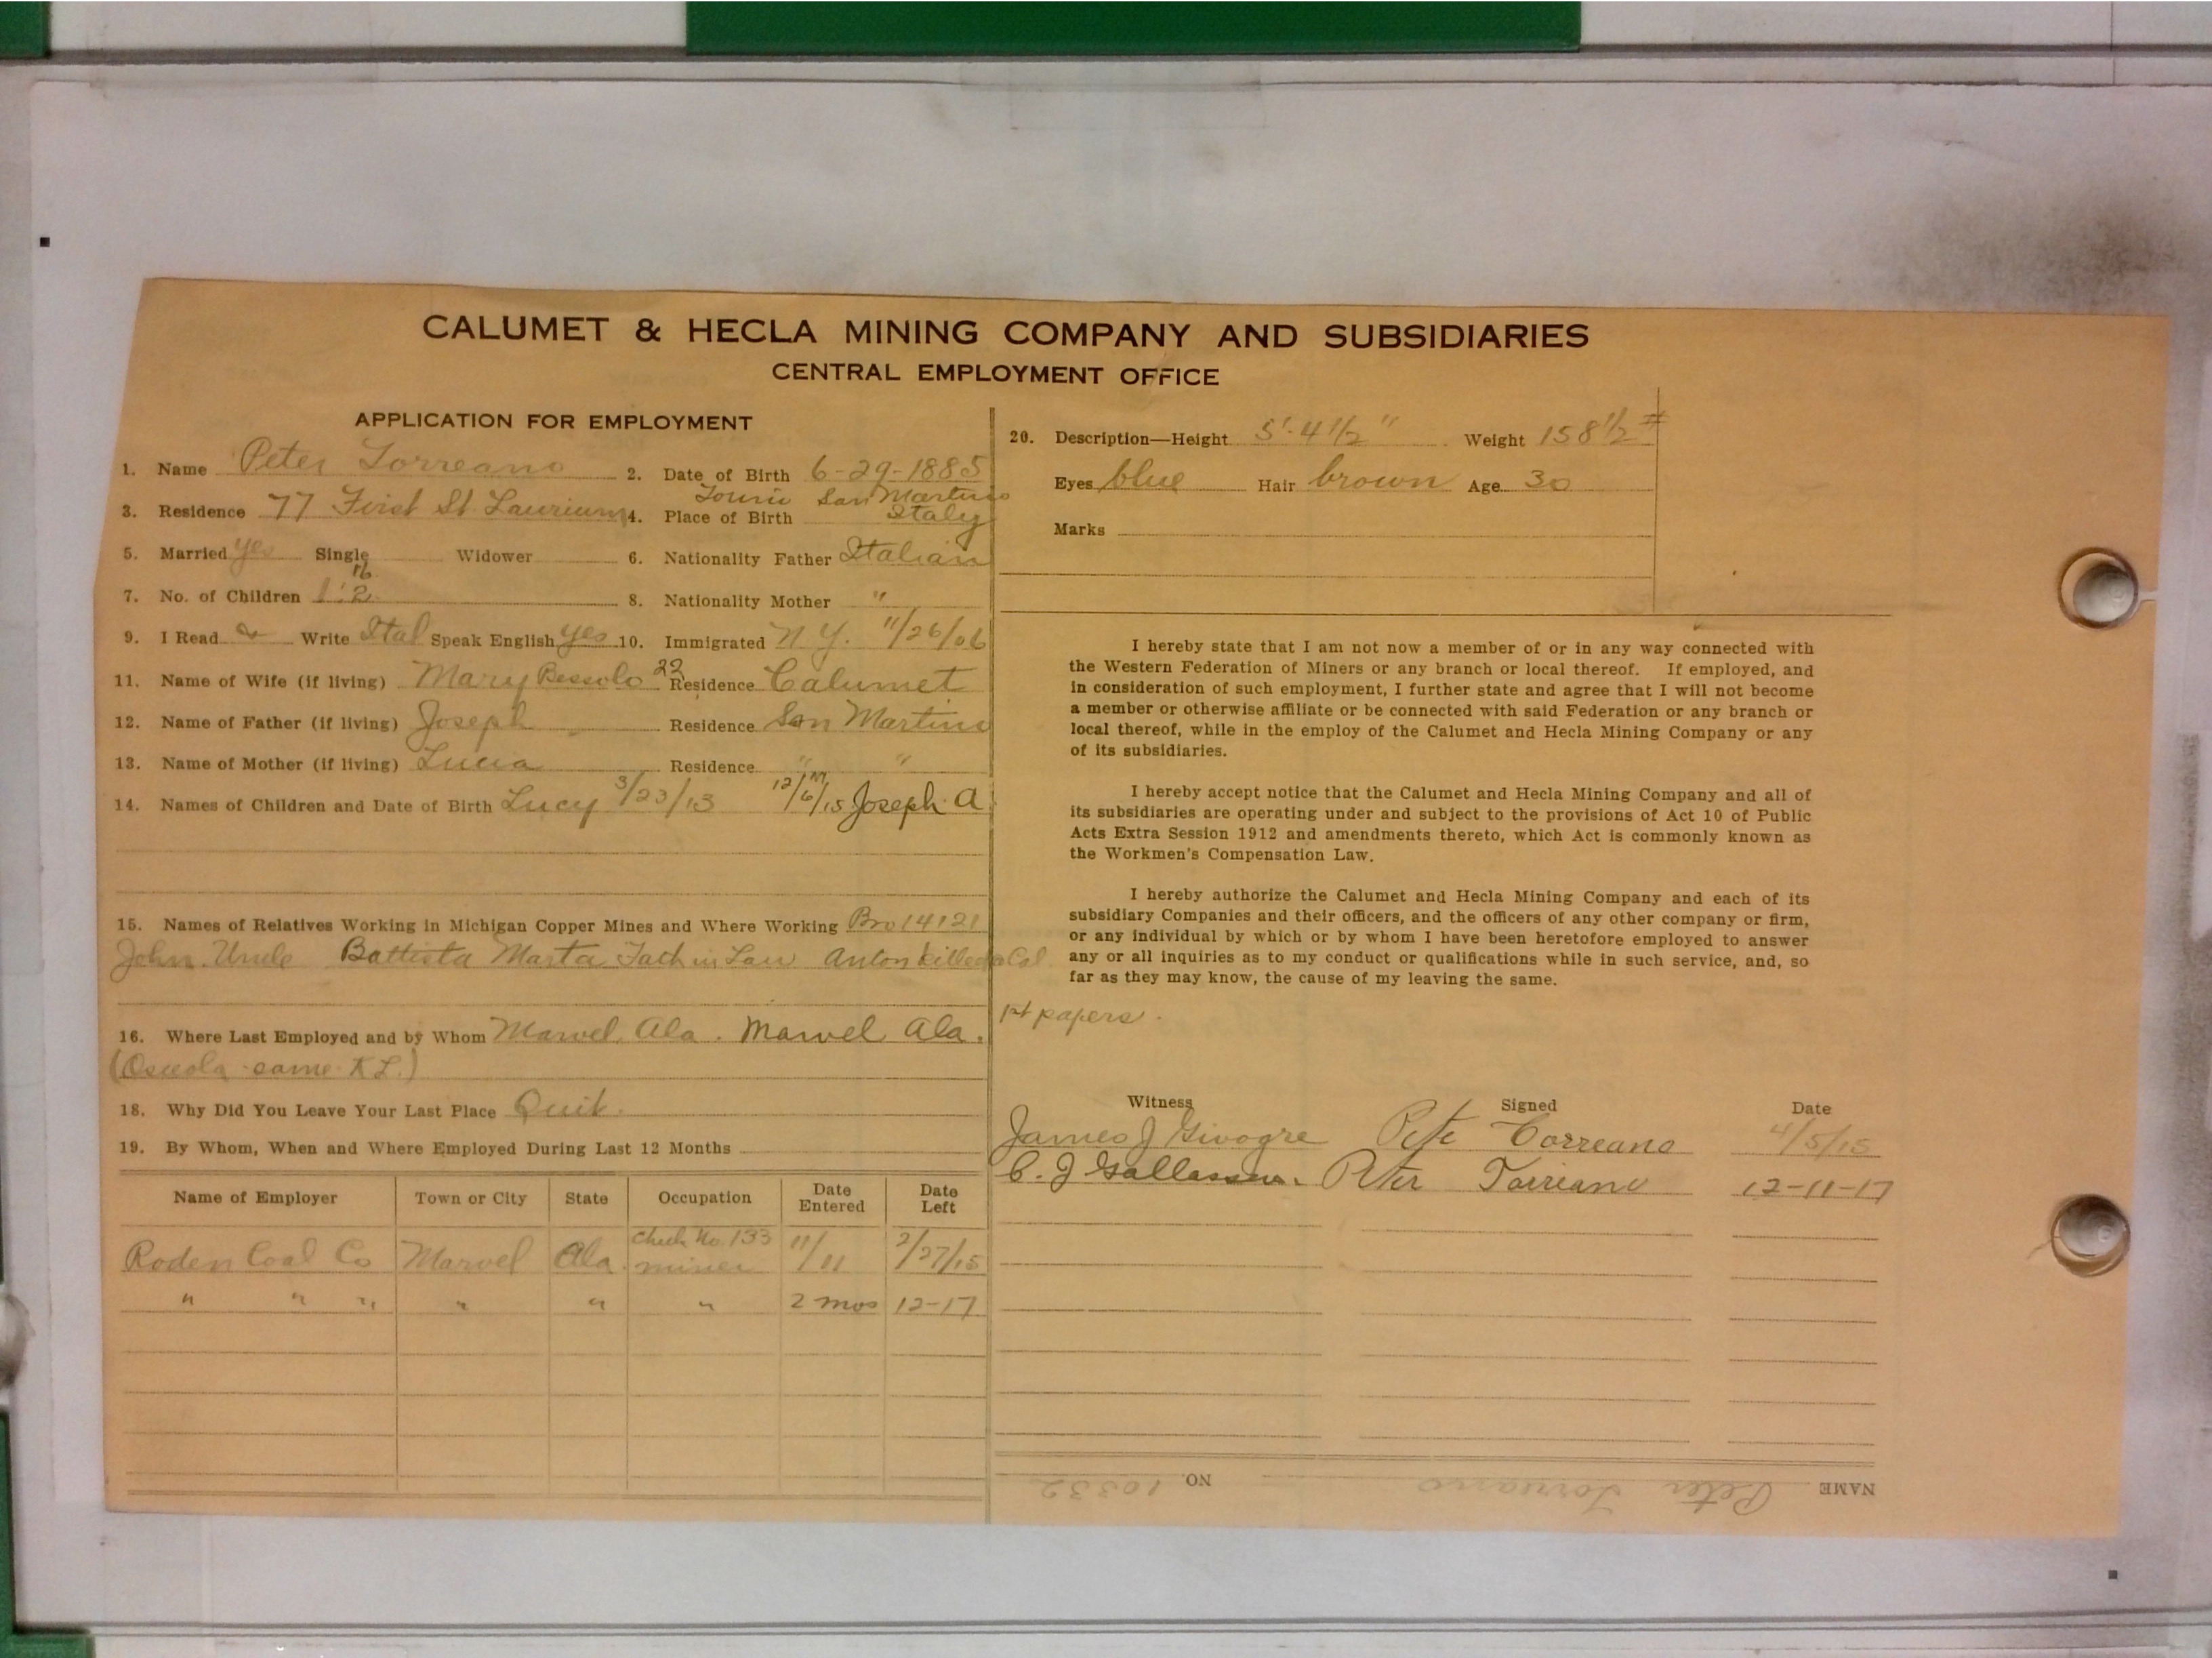 CALUMET & HECLA MINING COMPANY AND SUBSIDIARIES
CENTRAL EMPLOYMENT OFFICE
APPLICATION FOR EMPLOYMENT
1. Name Peter Torreano 2. Date of Birth 6-29-1885
3. Residence 77 First St Laurium 4. Place of Birth San Martino Italy
5. Married yes Single Widower 6. Nationality Father Italian
7. No. of Children 1 2 8. Nationality Mother "
9. I Read & Write Ital Speak English yes 10. Immigrated N.Y. 11/26/06
11. Name of Wife (if living) Mary 22 Residence Calumet
12. Name of Father (if living) Joseph Residence San Martino
13. Name of Mother (if living) Lucia Residence " "
14. Names of Children and Date of Birth Lucy 3/23/13 12/6/15 Joseph A
15. Names of Relatives Working in Michigan Copper Mines and Where Working Bro 14121
John Uncle Battista Marta Fath in Law Anton killed Col
16. Where Last Employed and by Whom Marvel Ala. Marvel Ala.
(Osceola same K L.)
18. Why Did You Leave Your Last Place Quit.
19. By Whom, When and Where Employed During Last 12 Months
Name of Employer Town or City State Occupation Date Entered Date Left
Roden Coal Co Marvel Ala. Check No. 133 miner 11/11 2/27/15
" " " " " " 2 mos 12-17
20. Description—Height 5'-4 1/2" Weight 158 1/2 #
Eyes blue Hair brown Age 30
Marks
I hereby state that I am not now a member of or in any way connected with
the Western Federation of Miners or any branch or local thereof. If employed, and
in consideration of such employment, I further state and agree that I will not become
a member or otherwise affiliate or be connected with said Federation or any branch or
local thereof, while in the employ of the Calumet and Hecla Mining Company or any
of its subsidiaries.
I hereby accept notice that the Calumet and Hecla Mining Company and all of
its subsidiaries are operating under and subject to the provisions of Act 10 of Public
Acts Extra Session 1912 and amendments thereto, which Act is commonly known as
the Workmen's Compensation Law.
I hereby authorize the Calumet and Hecla Mining Company and each of its
subsidiary Companies and their officers, and the officers of any other company or firm,
or any individual by which or by whom I have been heretofore employed to answer
any or all inquiries as to my conduct or qualifications while in such service, and, so
far as they may know, the cause of my leaving the same.
1st papers.
Witness Signed Date
James J Givogre Pete Torreano 4/5/15
C. J Peter Torreano 12-11-17
NAME Peter Torreano NO. 10332